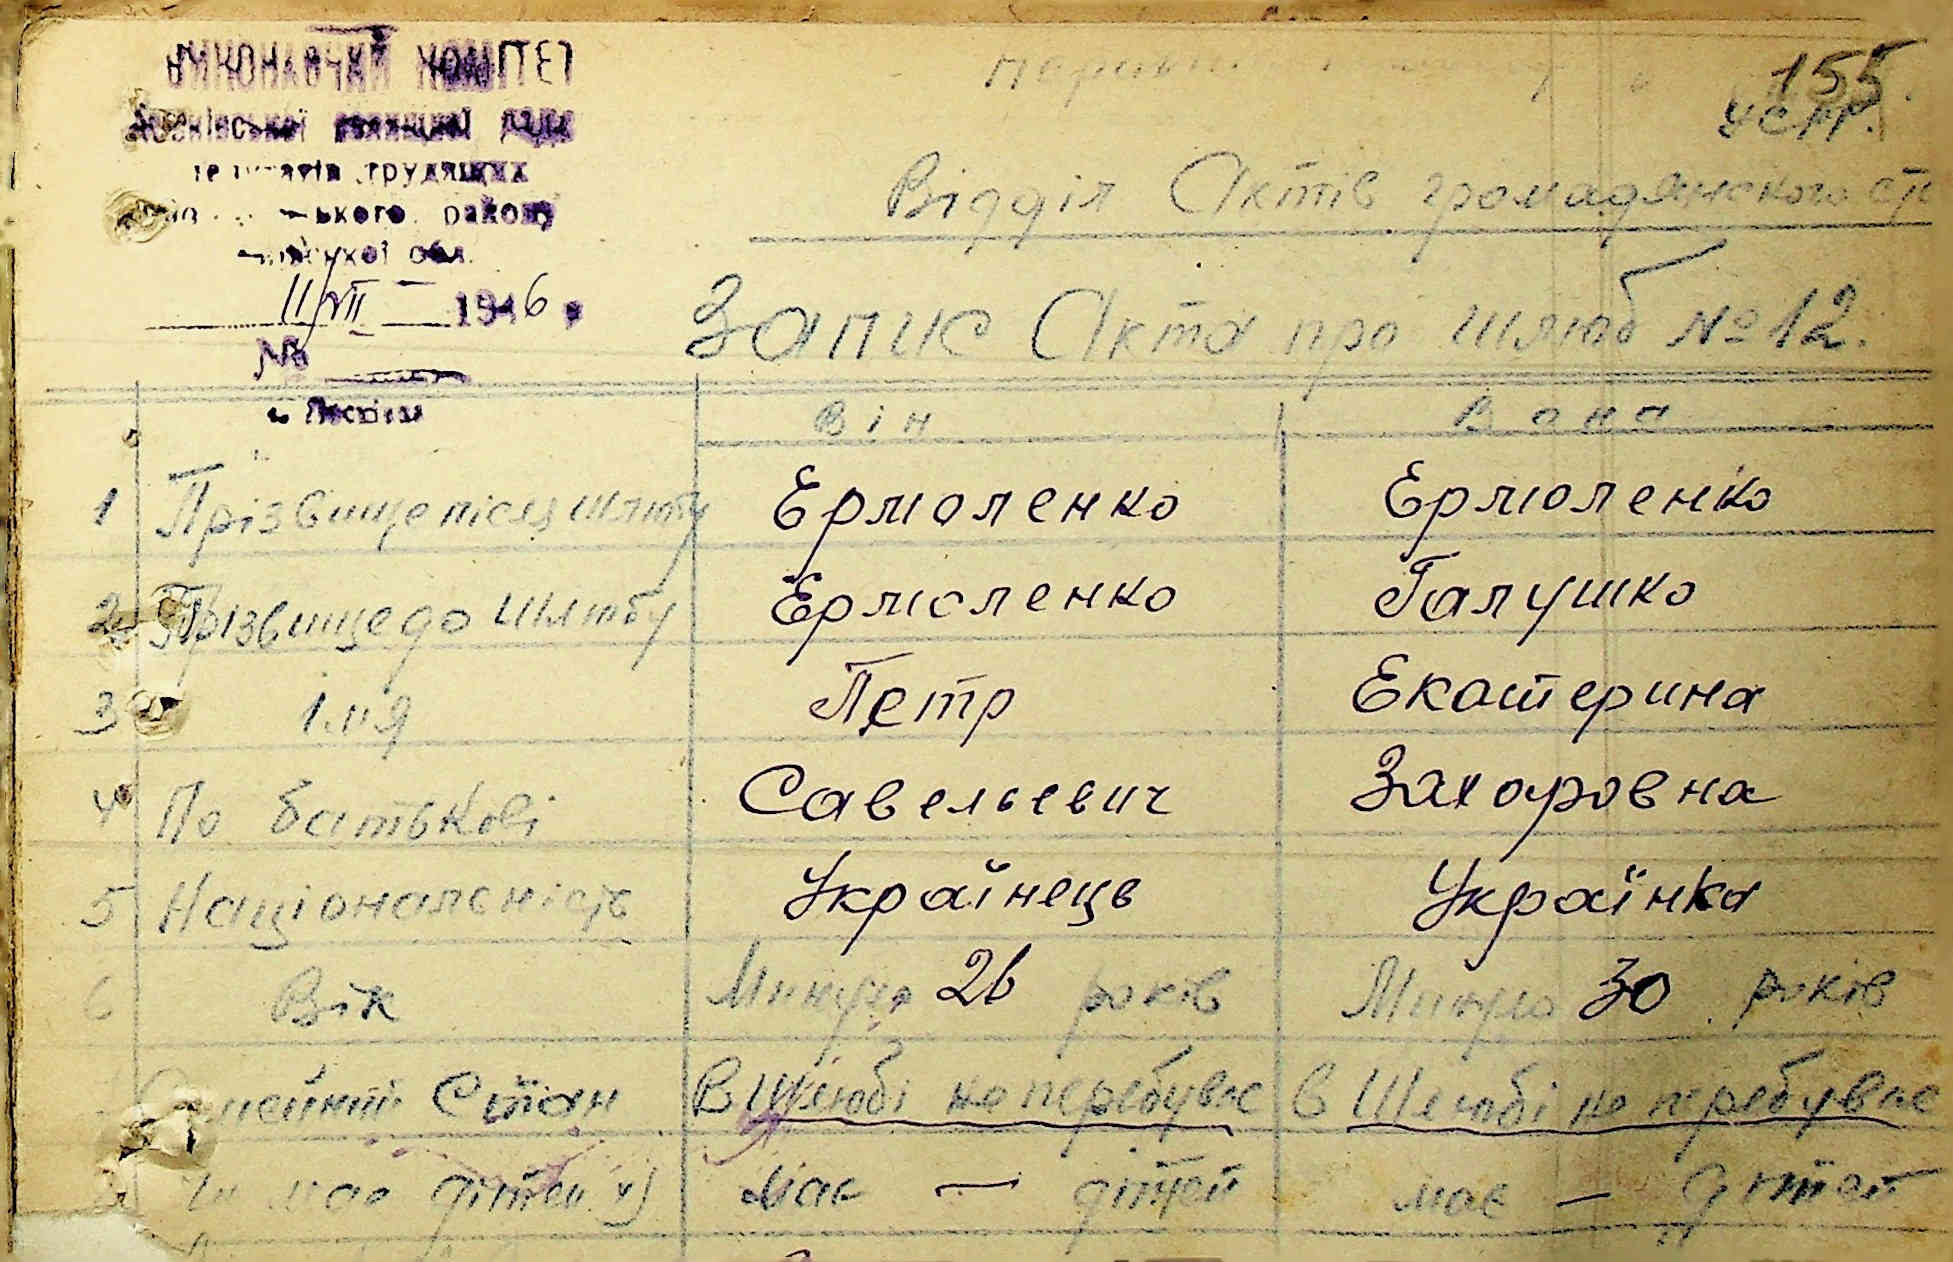 ВИКОНАВЧИЙ КОМІТЕТ
155
УСРР.
трудящих
ського району
обл.
Відділ Актів громадянского
11/VII 1946
Запис Акта про шлюб №12.
№
він вона
1 Прізвище після шлюбу Ермоленко Ермоленко
2 Прізвище до шлюбу Ермоленко Галушко
3 Імя Петр Екатерина
4 По батькові Савельевич Захаровна
5 Національність Українець Українка
6 Вік Минуло 26 років Минуло 30 років
Стан В Шлюбі не перебував В Шлюбі не перебував
має дітей має — дітей має — дітей